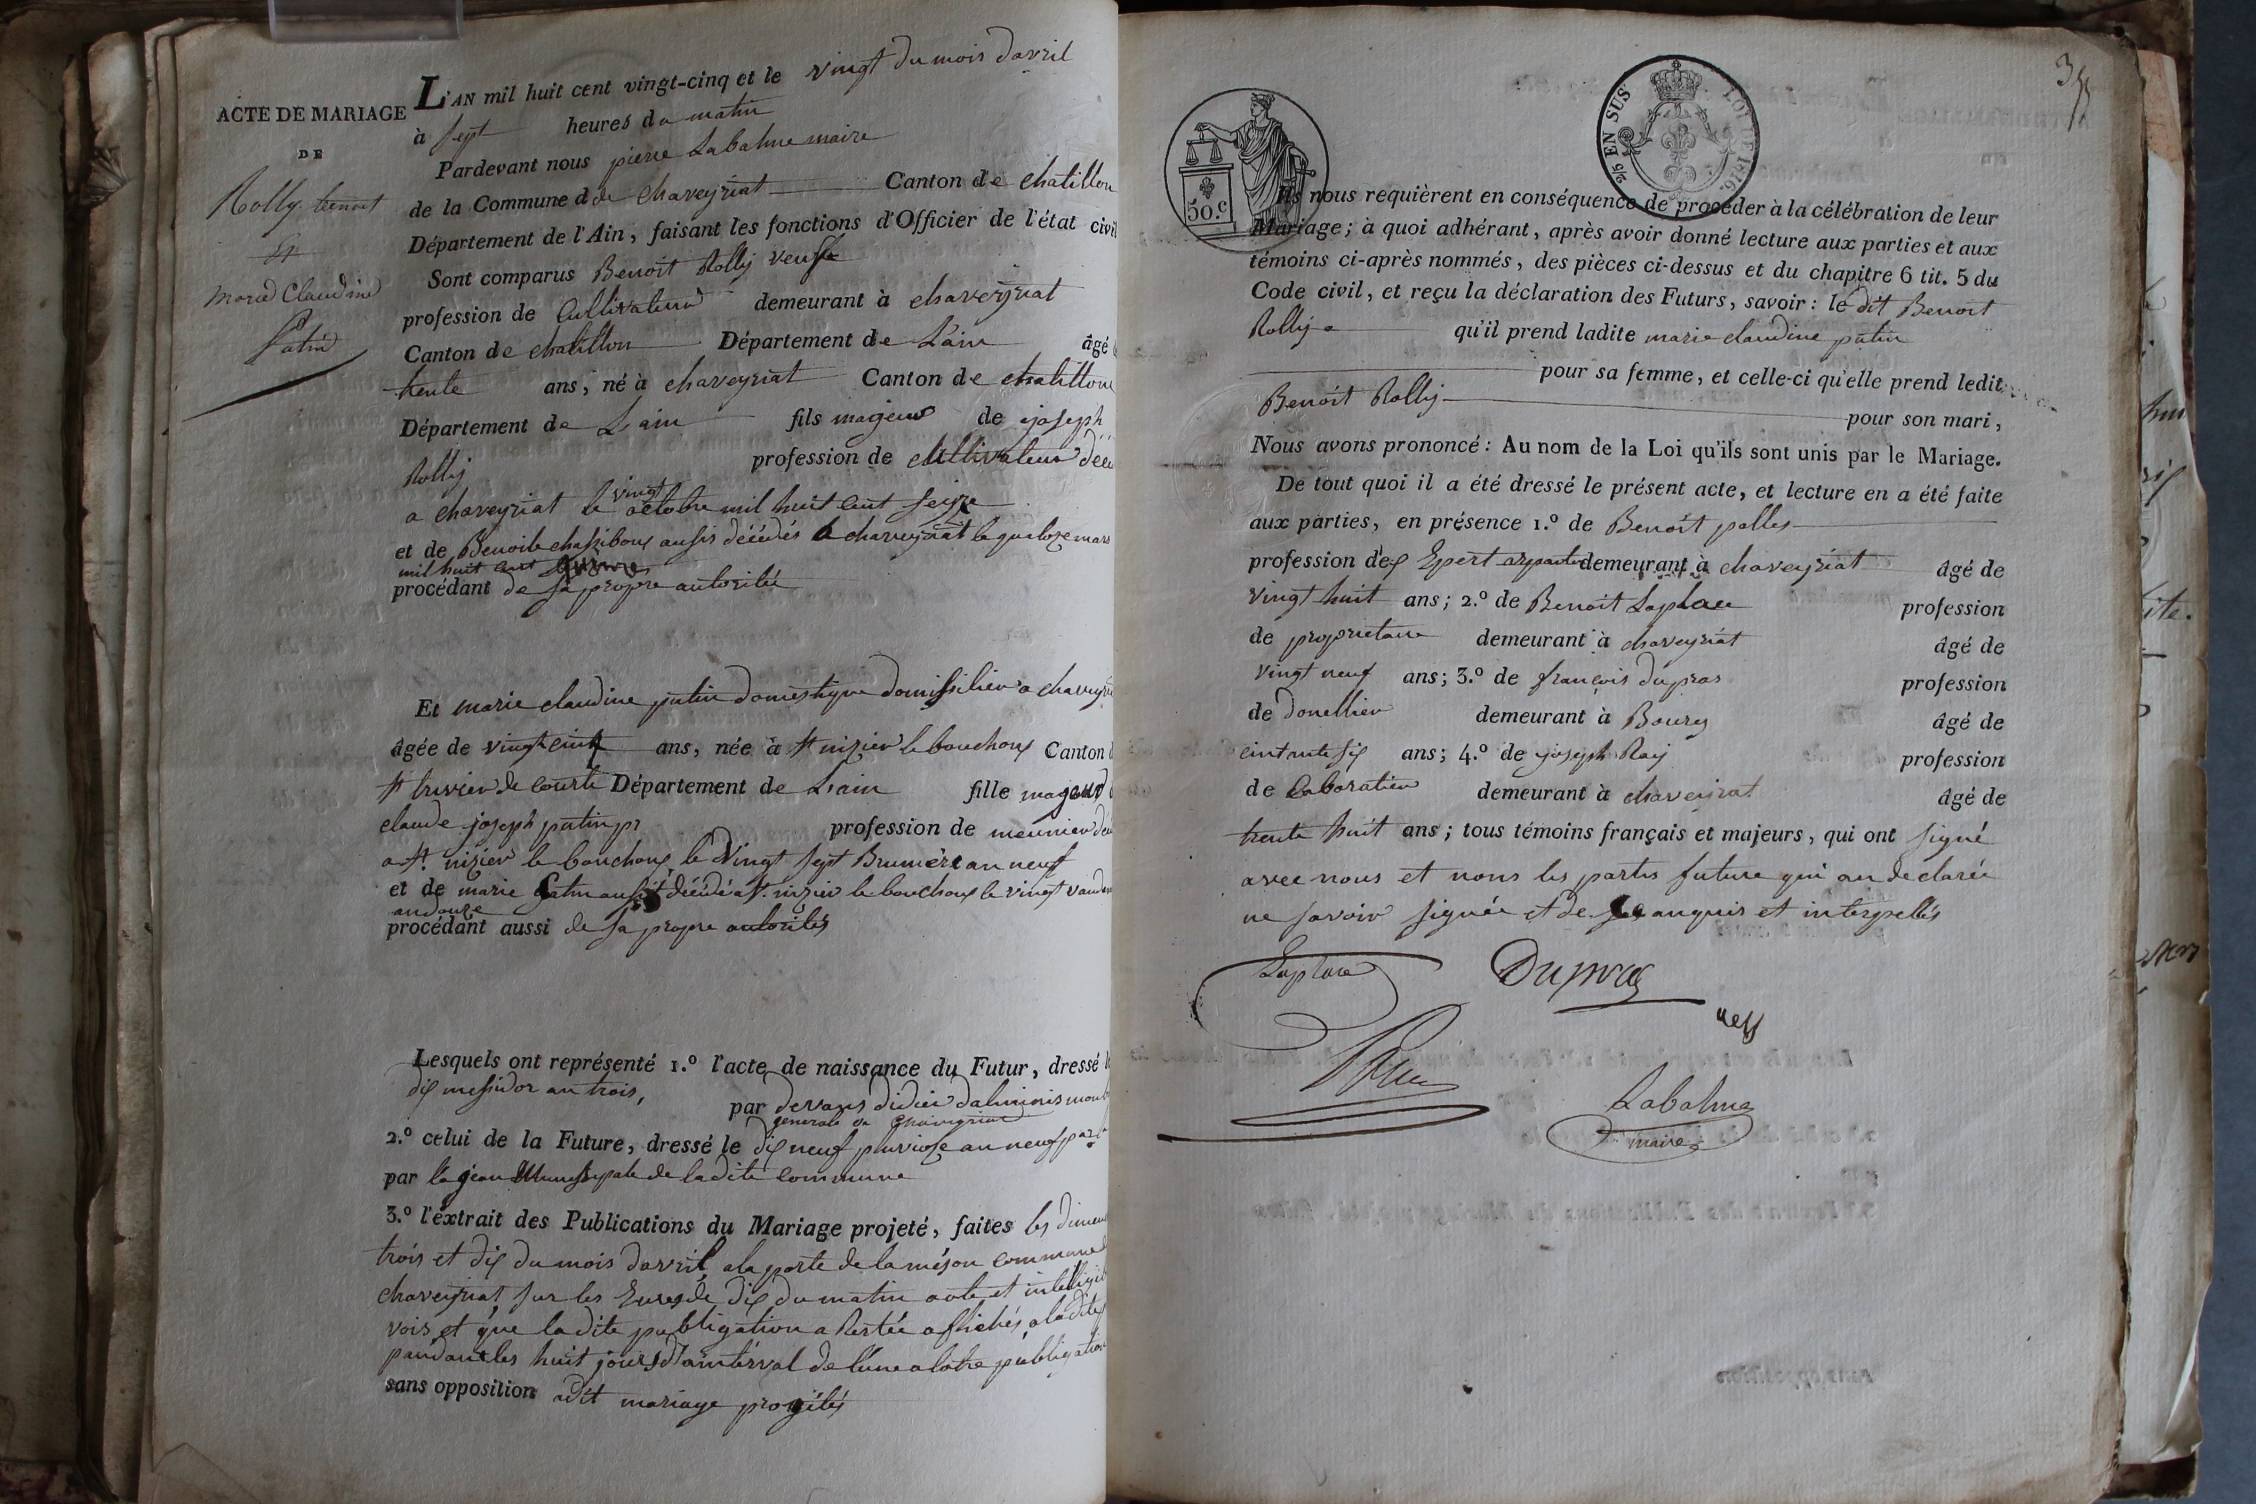 ACTE DE MARIAGE
DE
Rolly benoit
et
marie Claudine
Putin
L'AN mil huit cent vingt-cinq et le vingt du mois davril
à sept heures du matin
Pardevant nous pierre Labalme maire
de la Commune d de chaveyriat Canton de chatillon
Département de l'Ain, faisant les fonctions d'Officier de l'état civil
Sont comparus Benoit Rolly veuf
profession de Cultivateur demeurant à chaveyriat
Canton de chatillon Département de L'ain âgé
trente ans, né à chaveyriat Canton de chatillon
Département de L'ain fils majeur de joseph
Rolly profession de cultivateur
a chaveyriat le vingt octobre mil huit cent seize
et de Benoite chassiboux aussis décédés a chaveyriat le quatorze mars
mil huit cent
procédant de sa propre autoritée
Et marie claudine putin domestique domissilier a
âgée de vingt cinq ans, née à st nizier le bouchoux Canton
st trivier de courte Département de L'ain fille majeur
claude joseph putin profession de meunier
a st. nizier le bouchoux le vingt sept Brumère an neuf
et de marie aussi décédé a st. nizier le bouchoux le vingt
an douze
procédant aussi de sa propre autorités
Lesquels ont représenté 1.º l'acte de naissance du Futur, dressé
dix messidor an trois, par devans didier
generale de chaveyriat
2.º celui de la Future, dressé le dix neuf pluvioze an neuf
par la municipale de ladite commune
3.º l'extrait des Publications du Mariage projeté, faites les
trois et dix du mois davril, ala porte de la méson commune
chaveyriat sur les Eures de dix du matin aute et
vois et que ladite publigation a Restée affichés a ladite
pandant les huit jours d'aintérval de l'une a lotre publigation
sans opposition adit mariage progétés
3
25 EN SUS
LOI DE
50.c
Ils nous requièrent en conséquence de procéder à la célébration de leur
Mariage; à quoi adhérant, après avoir donné lecture aux parties et aux
témoins ci-après nommés, des pièces ci-dessus et du chapitre 6 tit. 5 du
Code civil, et reçu la déclaration des Futurs, savoir: le dit Benoit
Rolly qu'il prend ladite marie claudine putin
pour sa femme, et celle-ci qu'elle prend ledit
Benoit Rolly pour son mari,
Nous avons prononcé: Au nom de la Loi qu'ils sont unis par le Mariage.
De tout quoi il a été dressé le présent acte, et lecture en a été faite
aux parties, en présence 1.º de Benoit pollet
profession d'ex Expert demeurant à chaveyriat âgé de
vingt huit ans; 2.º de Benoit Laplace profession
de proprietaire demeurant à chaveyriat âgé de
vingt neuf ans; 3.º de françois dupras profession
de tonellier demeurant à Bourg âgé de
cintante six ans; 4.º de joseph Ray profession
de Laboratier demeurant à chaveyriat âgé de
trente huit ans; tous témoins français et majeurs, qui ont signé
avec nous et nons les partis future qui an declarée
ne savoir signée et de se anquis et interpellés
Laplace
Dupras
Labalme
maire